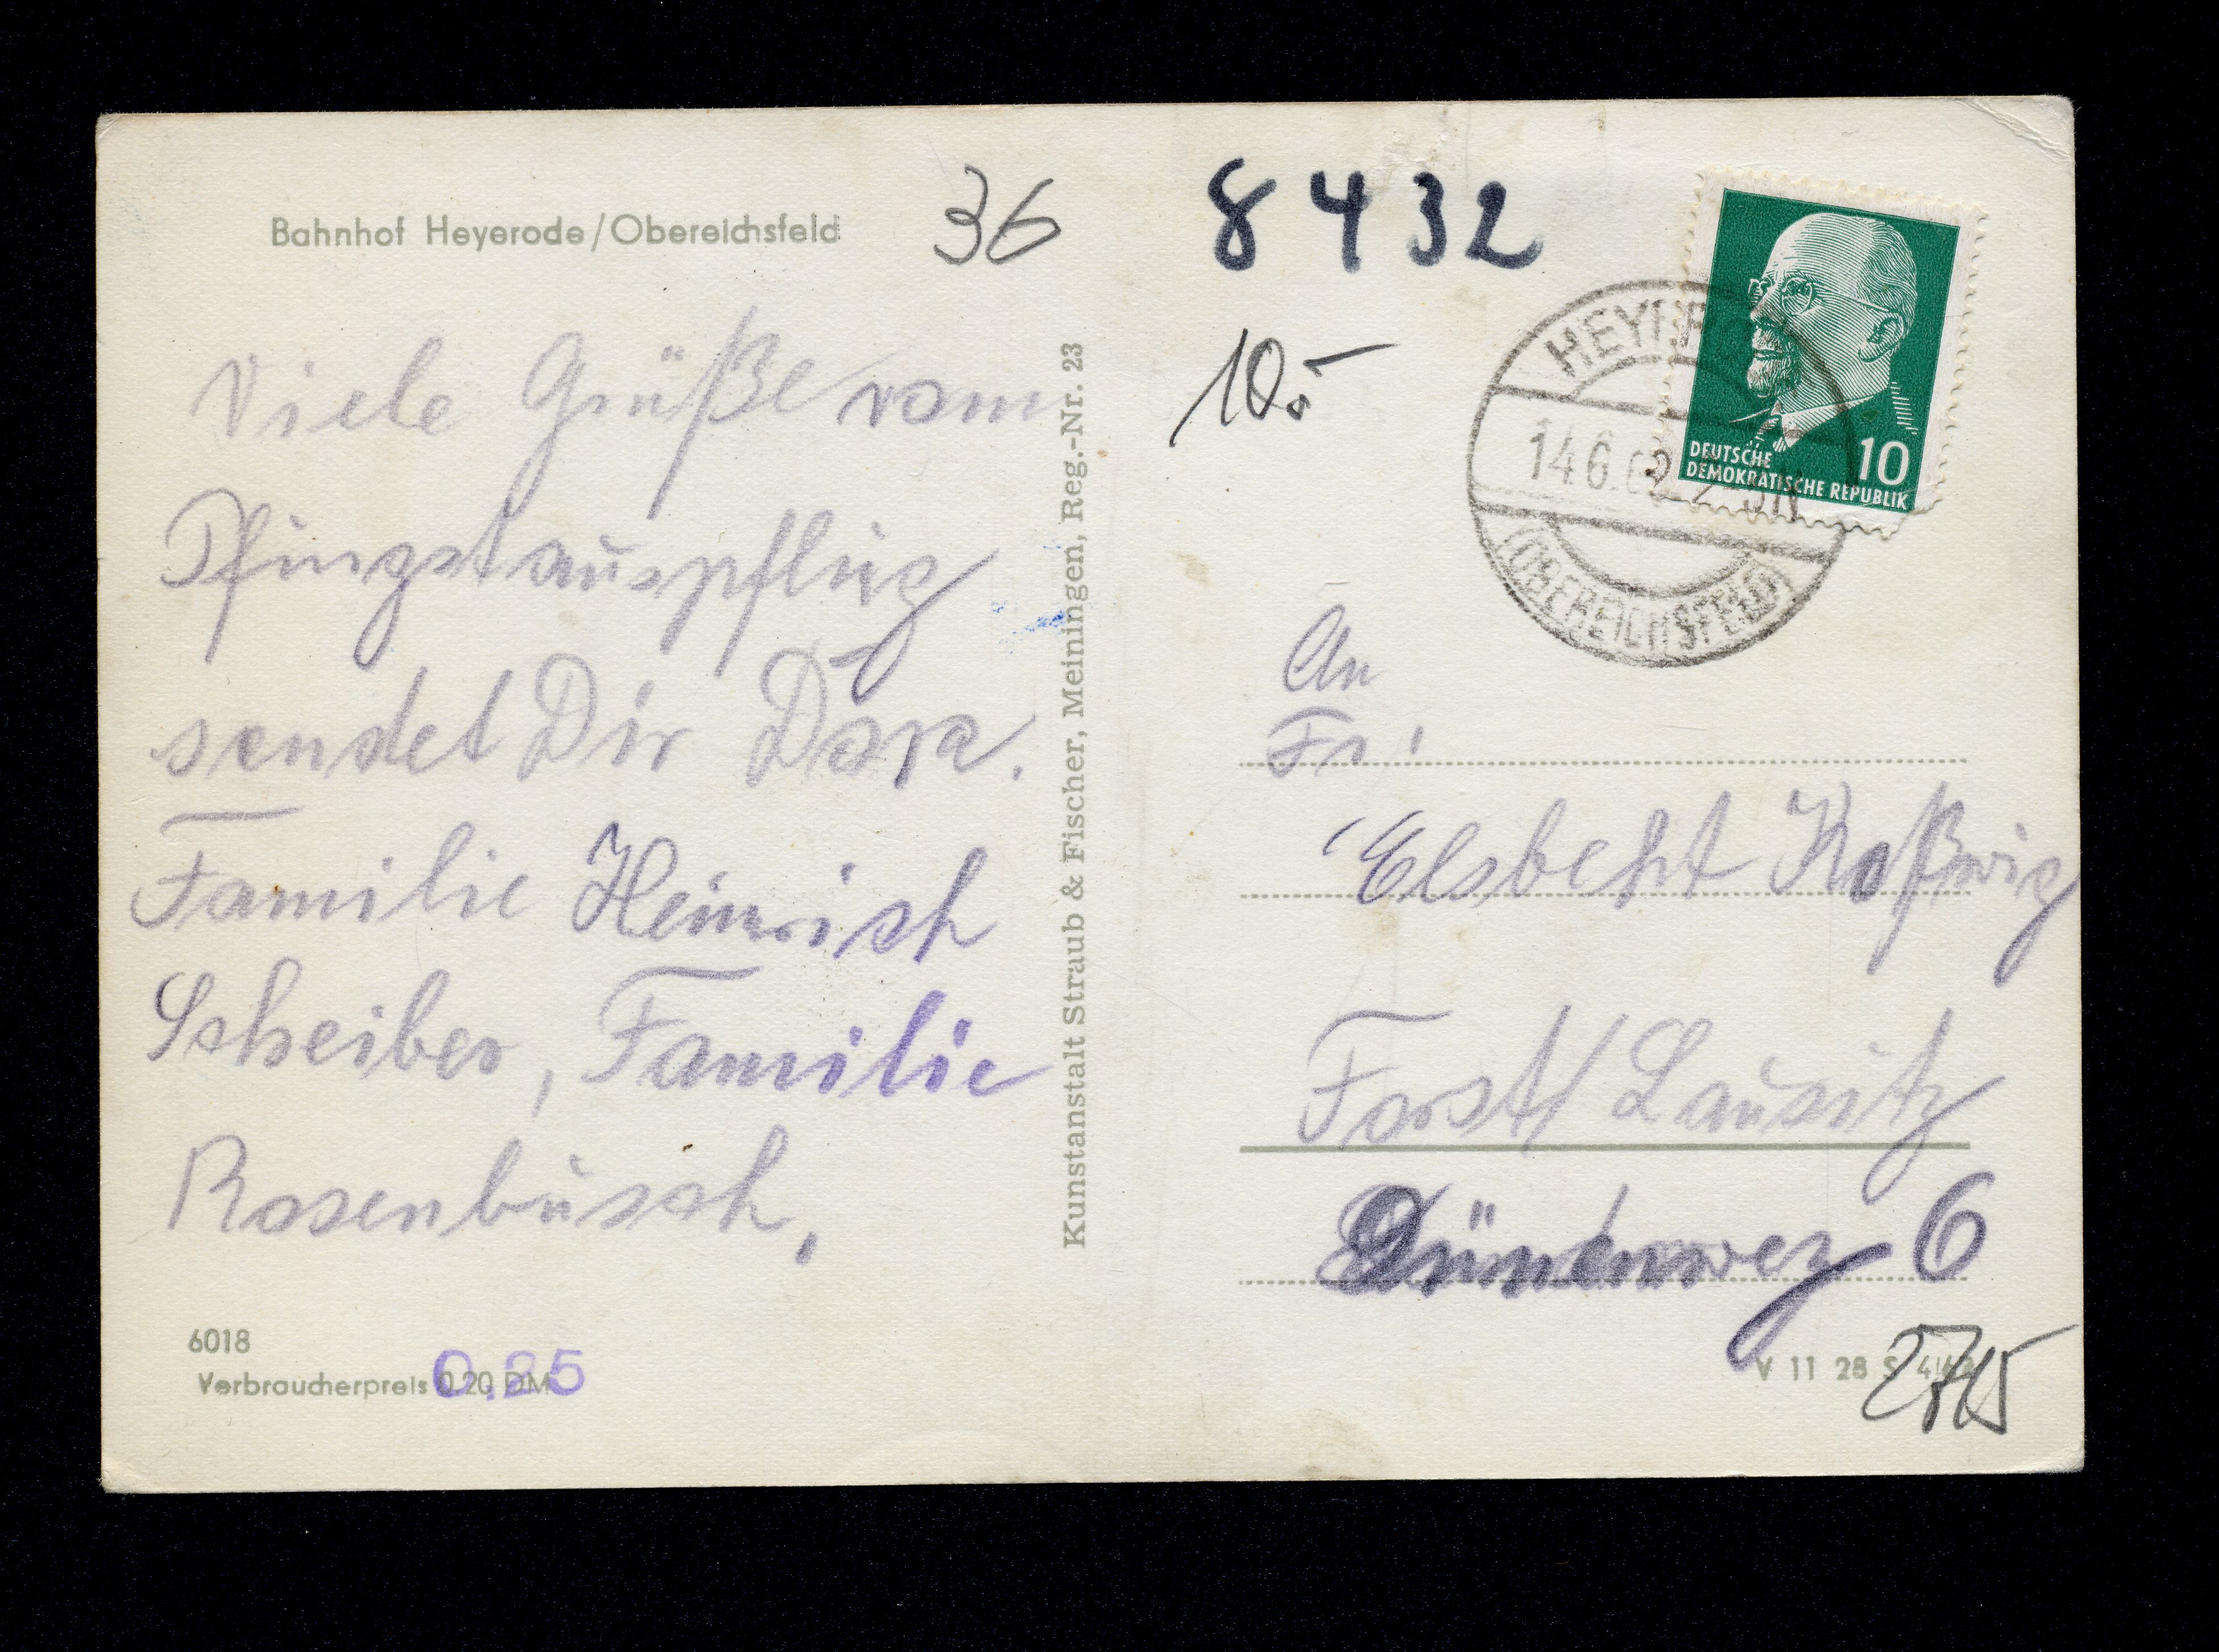 Bahnhof Heyerode/Obereichsfeld
36
Viele Grüße vom
Pfingstauspflug
sendet Dir Dora.
Familie Heinrich
Schreiber, Familie
Rosenbusch.
6018
Verbraucherpreis 0.20 DM
0.25
Kunstanstalt Straub & Fischer, Meiningen, Reg.-Nr. 23
8432
10.-
DEUTSCHE
DEMOKRATISCHE REPUBLIK
10
HEYERODE
14.6.62
(OBEREICHSFELD)
An
Fr.
Elsbeht Koßwig
Forst/Lausitz
Dünenweg 6
V 11 28 S